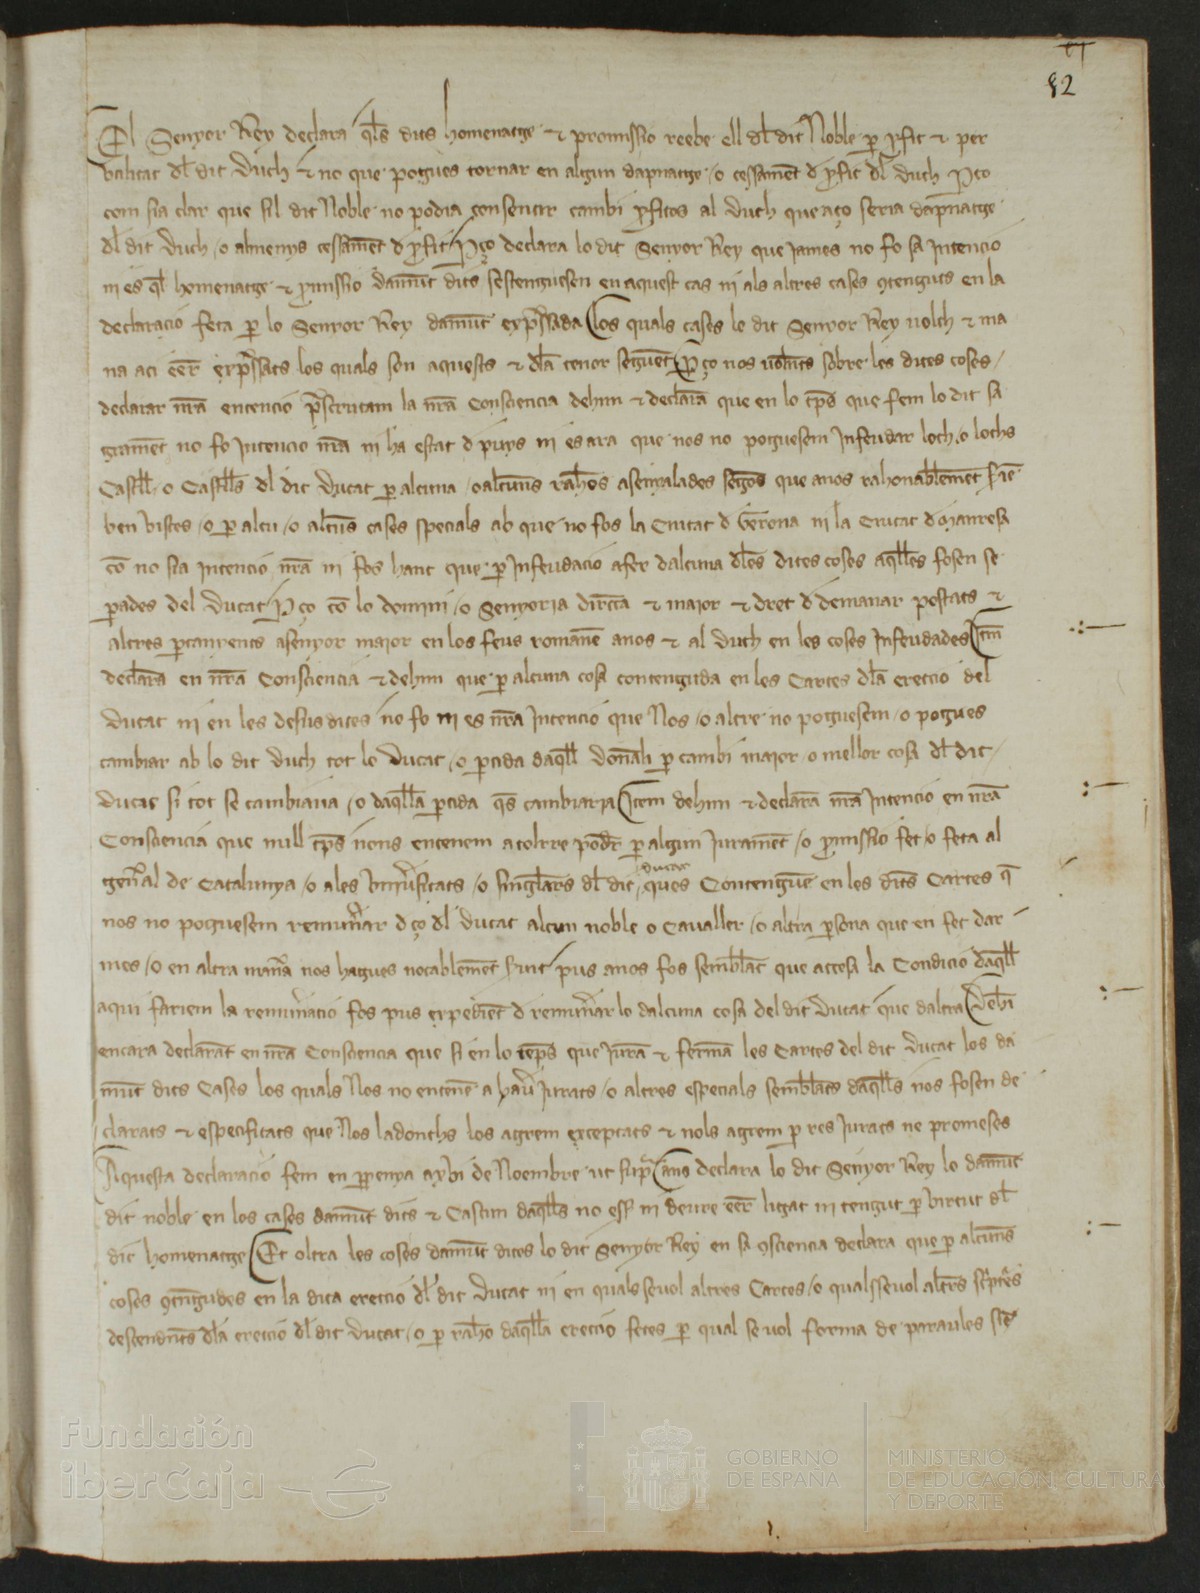 82
El Senyor Rey declara q̄ls dits homenatge et promissio reebe ell dl̄ dit Noble per ꝓfit et per
vtilitat dl̄ dit Duch et no que pogues tornar en algun dapnatge / o cessamēt d ꝓfit dl̄ duch P ço
com sia clar que sil dit Noble no podia consentir cambi ꝓfitos al duch que aço seria dapnatge
dl̄ dit duch / o almenys cessamēt d ꝓfit P ço declara lo dit Senyor Rey que james no fo sa Intencio
ni es q̄l homenatge et ꝓmissio damūt dits sestenguesen en aquest cas ni als altres cases ꝯtenguts en la
declaracio feta ꝑ lo Senyor Rey damūt expr̄ssada Los quals cases lo dit Senyor Rey volch et ma
na aci eēr exp̄ssats los quals son aquests et dl̄a tenor seguēt P ço nos volēts sobre les dites coses /
declarar nr̄a entencio p̄scrutam la nr̄a Consciencia dehim et declarā que en lo tp̄s que fem lo dit sa
gramēt no fo Intencio nr̄a ni ha estat d puys ni es ara que nos no poguesem Infeudar loch / o lochs
Castell / o Castells dl̄ dit ducat ꝑ alcuna / o alcunes rahōs asenyalades segōs que anos rahonablemēt
ben vistes / o ꝑ alcu / o alcūs cases specials ab que no fos la Ciutat d Gerona ni la Ciutat d Manresa
cō no sia intencio nr̄a ni fos hanc que ꝑ Infeudacio afer dalcuna dl̄es dites coses aq̄lles fosen se
ꝑades del ducat P ço cō lo domini / o Senyoria dircta et maior et dret d demanar postats et
altres ꝑtanyents asenyor maior en los feus romanē anos et al duch en les coses Infeudades Itm̄
declarā en nr̄a Consciencia et dehim que ꝑ alcuna cosa contenguda en les Cartes dl̄a ereccio del
ducat ni en les desus dites no fo ni es nr̄a Intencio que Nos / o altre no poguesem / o pogues
cambiar ab lo dit duch tot lo ducat / o ꝑtida daq̄ll donāli ꝑ cambi maior / o mellor cosa dl̄ dit /
ducat si tot se cambiaua / o daq̄lla ꝑtida q̄s cambiaria Item dehim et declarā nr̄a Intencio en nr̄a
Consciencia que null tp̄s nons entenem a tolrre podr̄ ꝑ algun Juramēt / o ꝓmissio fet / o feta al
gen̄al de Catalunya / o ales vniūsitats / o singl̄ars dl̄ dit ducat ques Contengue en les dits Cartes q̄
nos no poguesem remun̄ar d ço dl̄ ducat alcun noble o Caualler / o altra ꝑsona que en fet dar
mes / o en altra man̄a nos hagues notablemēt seruit pus anos fos semblāt que attesa la Condicio daq̄ll
aqui fariem la remun̄acio fos pus expediēt d remun̄arlo dalcuna cosa del dit ducat que daltra
encara declarāt en nr̄a Consciencia que si en lo temps que Jurā et fermā les Cartes del dit ducat los da
mūt dits Cases los quals Nos no entenē a hau̅ Jurats / o altres especials semblāts daq̄lls nos fosen de
clarats et especificats que Nos ladonchs los agrem exceptats et nols agrem ꝑ res Jurats ne promeses
Aquesta declaracio fem en ꝑpenya a xvi de Noembre ut supᵃ Cans declara lo dit Senyor Rey lo damūt
dit noble en los cases damūt dits et Cascun daq̄lls no esser ni deure eēr ligat ni tengut ꝑ virtut dl̄
dit homenatge Et oltra les coses damūt dites lo dit Senyor Rey en sa ꝯsciencia declara que ꝑ alcunes
coses ꝯtēgudes en la dita ereccio dl̄ dit ducat ni en quals seuol altres Cartes / o quals seuol altr̄s scripturēs
descendn̄ts dl̄a ereccio dl̄ dit ducat / o ꝑ raho daq̄lla ereccio fetes ꝑ qual se uol forma de paraules
Fundación
iberCaja
GOBIERNO
DE ESPAÑA
MINISTERIO
DE EDUCACIÓN, CULTURA
Y DEPORTE